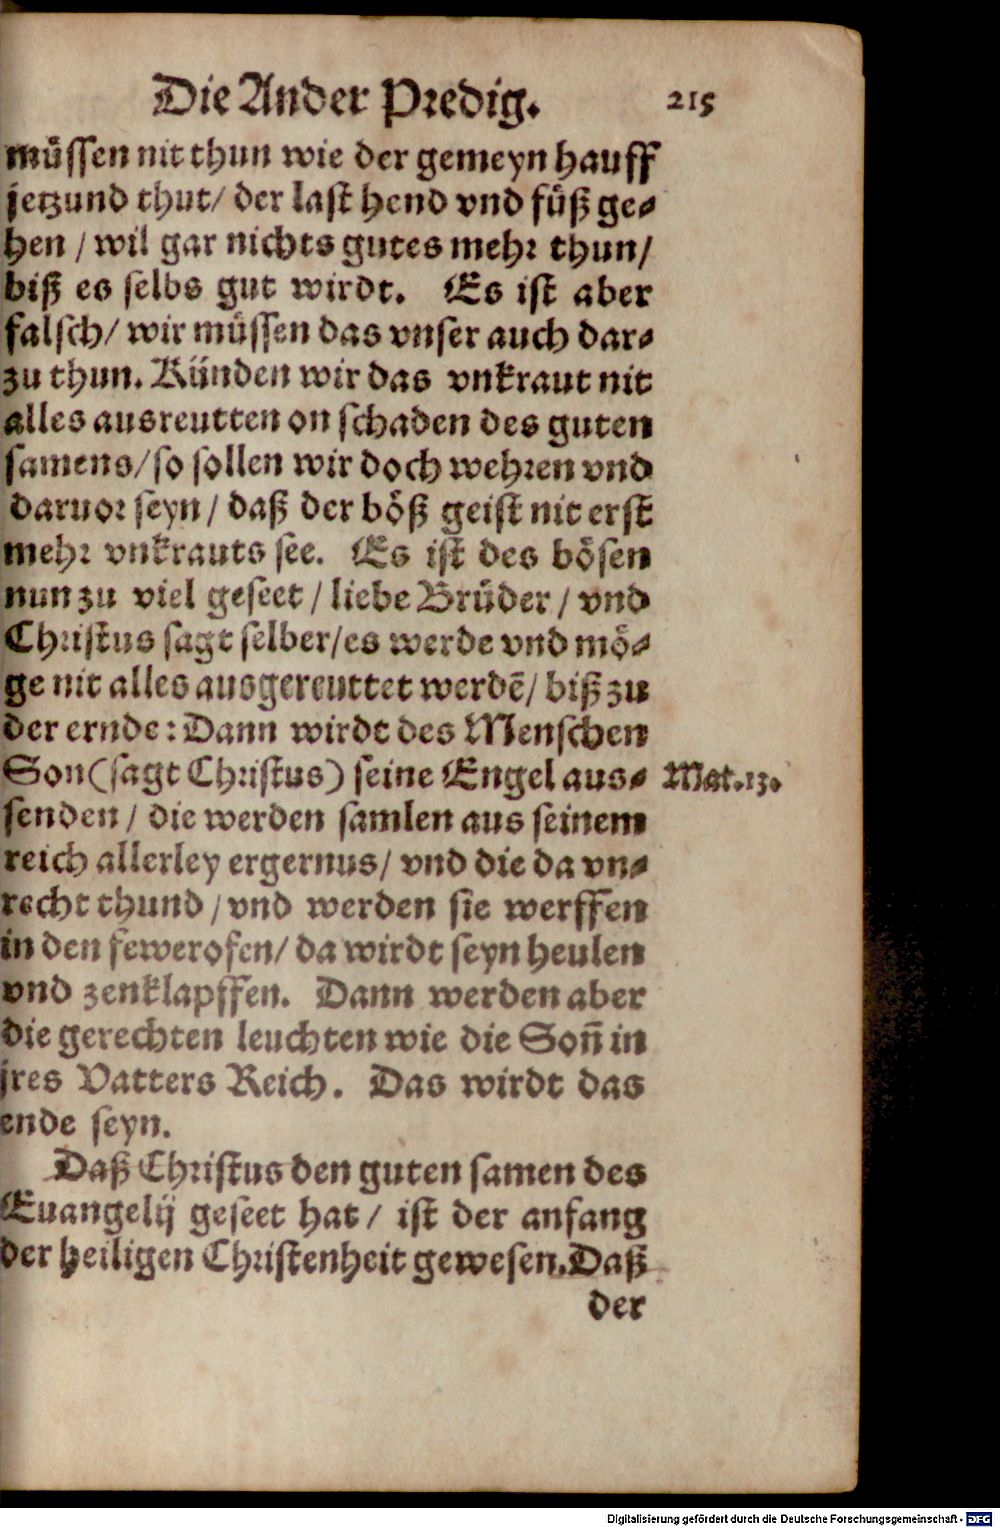 Die Ander Predig. 215
müssen nit thun wie der gemeyn hauff
jetzund thut/ der last hend vnd füß ge-
hen / wil gar nichts gutes mehr thun/
biß es selbs gut wirdt. Es ist aber
falsch/ wir müssen das vnser auch dar-
zu thun. Künden wir das vnkraut nit
alles ausreutten on schaden des guten
samens/so sollen wir doch wehren vnd
daruor seyn / daß der böß geist nit erst
mehr vnkrauts see. Es ist des bösen
nun zu viel geseet / liebe Brüder / vnd
Christus sagt selber/es werde vnd mö-
ge nit alles ausgereuttet werdē/ biß zu
der ernde: Dann wirdt des Menschen
Son(sagt Christus) seine Engel aus- Mat.13.
senden / die werden samlen aus seinem
reich allerley ergernus/ vnd die da vn-
recht thund / vnd werden sie werffen
in den fewerofen/ da wirdt seyn heulen
vnd zenklapffen. Dann werden aber
die gerechten leuchten wie die Son̄ in
jres Vatters Reich. Das wirdt das
ende seyn.
Daß Christus den guten samen des
Euangelij geseet hat / ist der anfang
der heiligen Christenheit gewesen. Daß
der
Digitalisierung gefördert durch die Deutsche Forschungsgemeinschaft - DFG